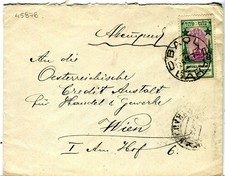 45878
An die
Oesterreichische
Credit Anstalt
für Handel & Gewerbe
Wien
I Am Hof 6.